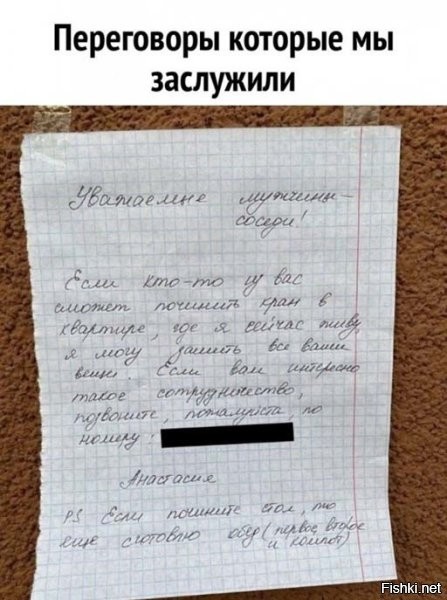 Переговоры которые мы
заслужили
Уважаемые мужчины-
соседи!
Если кто-то из вас
сможет починить кран в
квартире, где я сейчас живу,
я могу зашить все ваши
вещи. Если вам интересно
такое сотрудничество,
позвоните, пожалуйста, по
номеру:
Анастасия
PS Если почините стол, то
еще сготовлю обед (первое второе
и компот)
Fishki.net